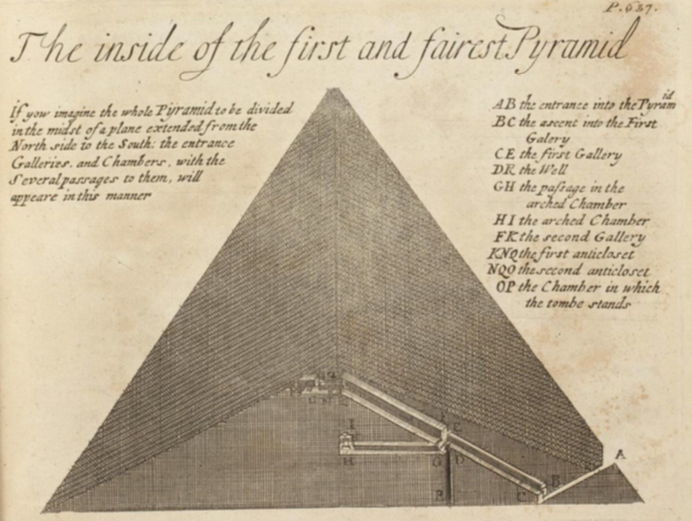 P. 637.
The inside of the first and fairest Pyramid
If yow imagine the whole Pyramid to be divided
in the midst of a plane extended from the
North side to the South: the entrance
Galleries, and Chambers, with the
Several passages to them, will
appeare in this manner
AB the entrance into the Pyramid
BC the ascent into the First
Galery
CE the first Gallery
DR the Well
GH the passage in the
arched Chamber
HI the arched Chamber
FK the second Gallery
KNQ the first anticloset
NQO the second anticloset
OP the Chamber in which
the tombe stands
I
H
G
D
E
R
B
C
A